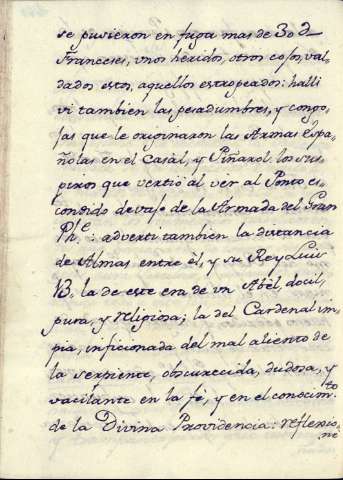 se pusieron en fuga mas de 30 d
Franceses, unos heridos, otros cojos, val
dados estos, aquellos estropeados: halli
vi tambien las pesadumbres, y congo-
jas que le originaron las Armas Espa-
ñolas en el Casàl, y Piñarol. los sus-
piros que vertiò al ver al Ponto es-
condido devajo de la Armada del Gran
Phe.: advertì tambien la distancia
de Almas entre èl, y su Rey Luis
13. la de este era de un Abèl, docil,
pura, y religiosa; la del Cardenal im-
pia, inficionada del mal aliento de
la serpiente, obscurecida, dudosa, y
vacilante en la fè, y en el conocimto
de la Divina Providencia: reflexio-
nè